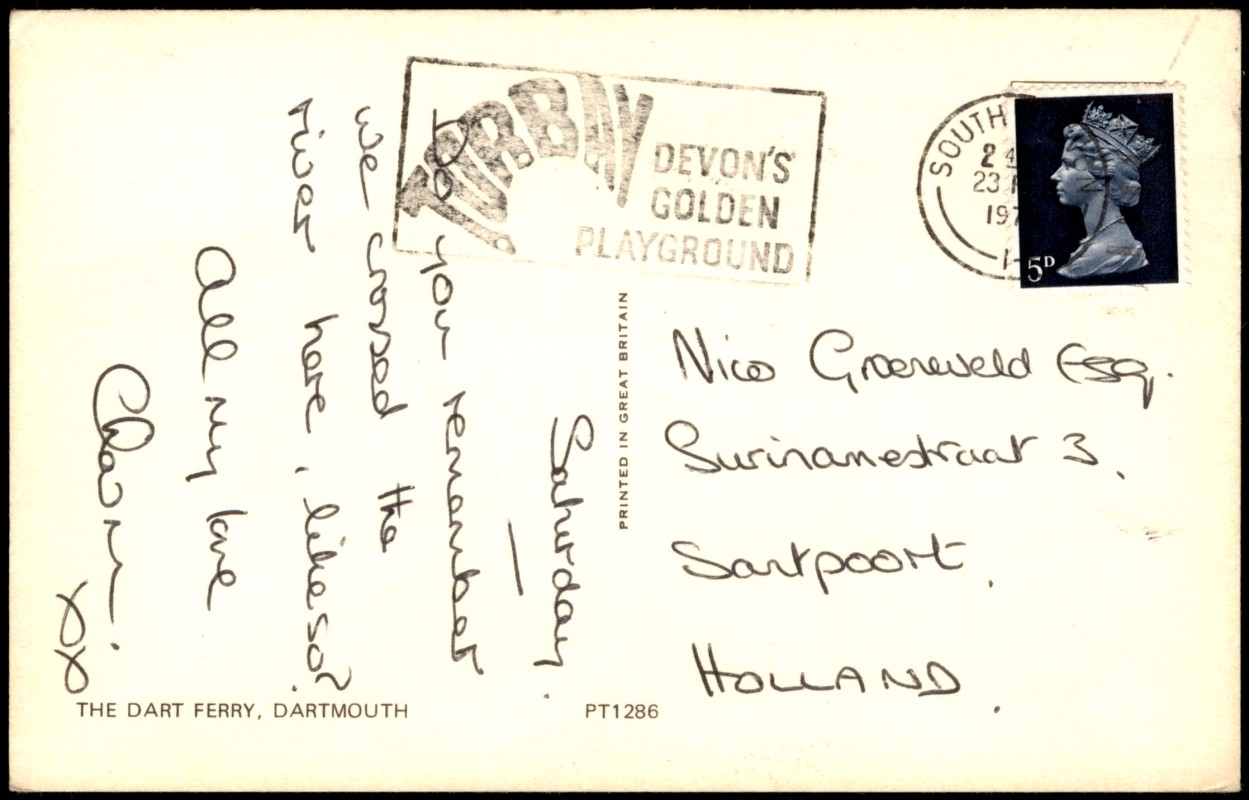 TORBAY
DEVON'S
GOLDEN
PLAYGROUND
SOUTH
2 4
23
197
5D
Saturday.
Do you remember
we crossed the
river here, like so?
All my love
xx
PRINTED IN GREAT BRITAIN
Nico Groeneveld Esq.
Surinamestraat 3,
Santpoort,
HOLLAND.
THE DART FERRY, DARTMOUTH
PT1286